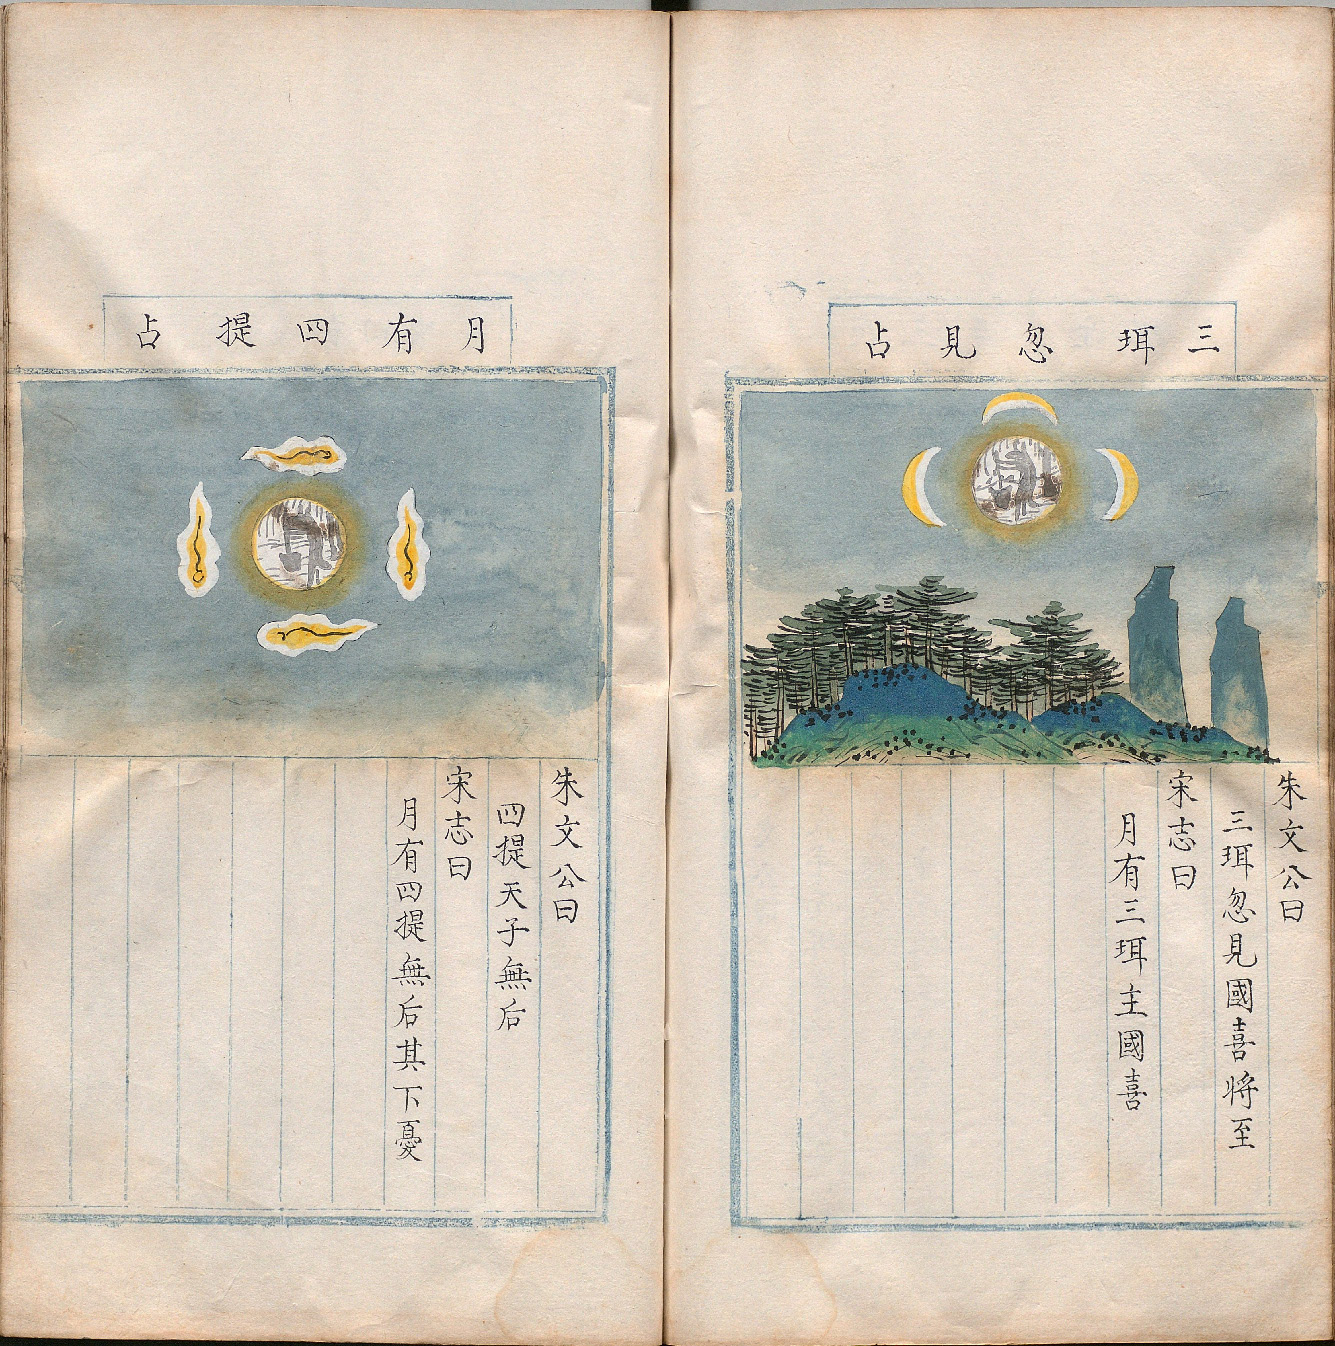 三珥忽見占
朱文公曰
三珥忽見國喜將至
宋志曰
月有三珥主國喜
月有四提占
朱文公曰
四提天子無后
宋志曰
月有四提無后其下憂